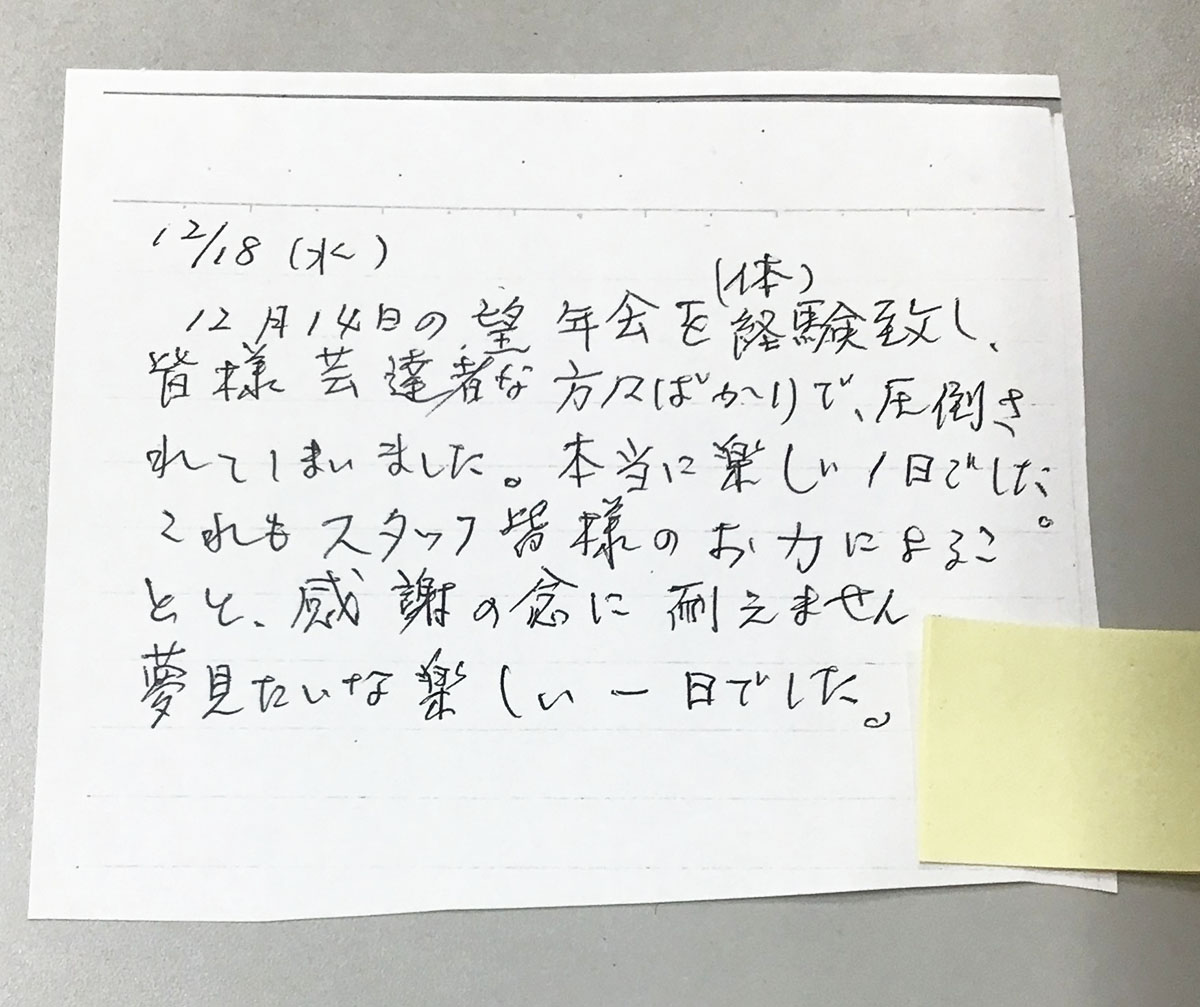 12/18 (水)
(体)
12月14日の望年会を経験致し、
皆様芸達者な方々ばかりで、圧倒さ
れてしまいました。本当に楽しい1日でした。
これもスタッフ皆様のお力によるこ
とと、感謝の念に耐えません
夢見たいな楽しい一日でした。